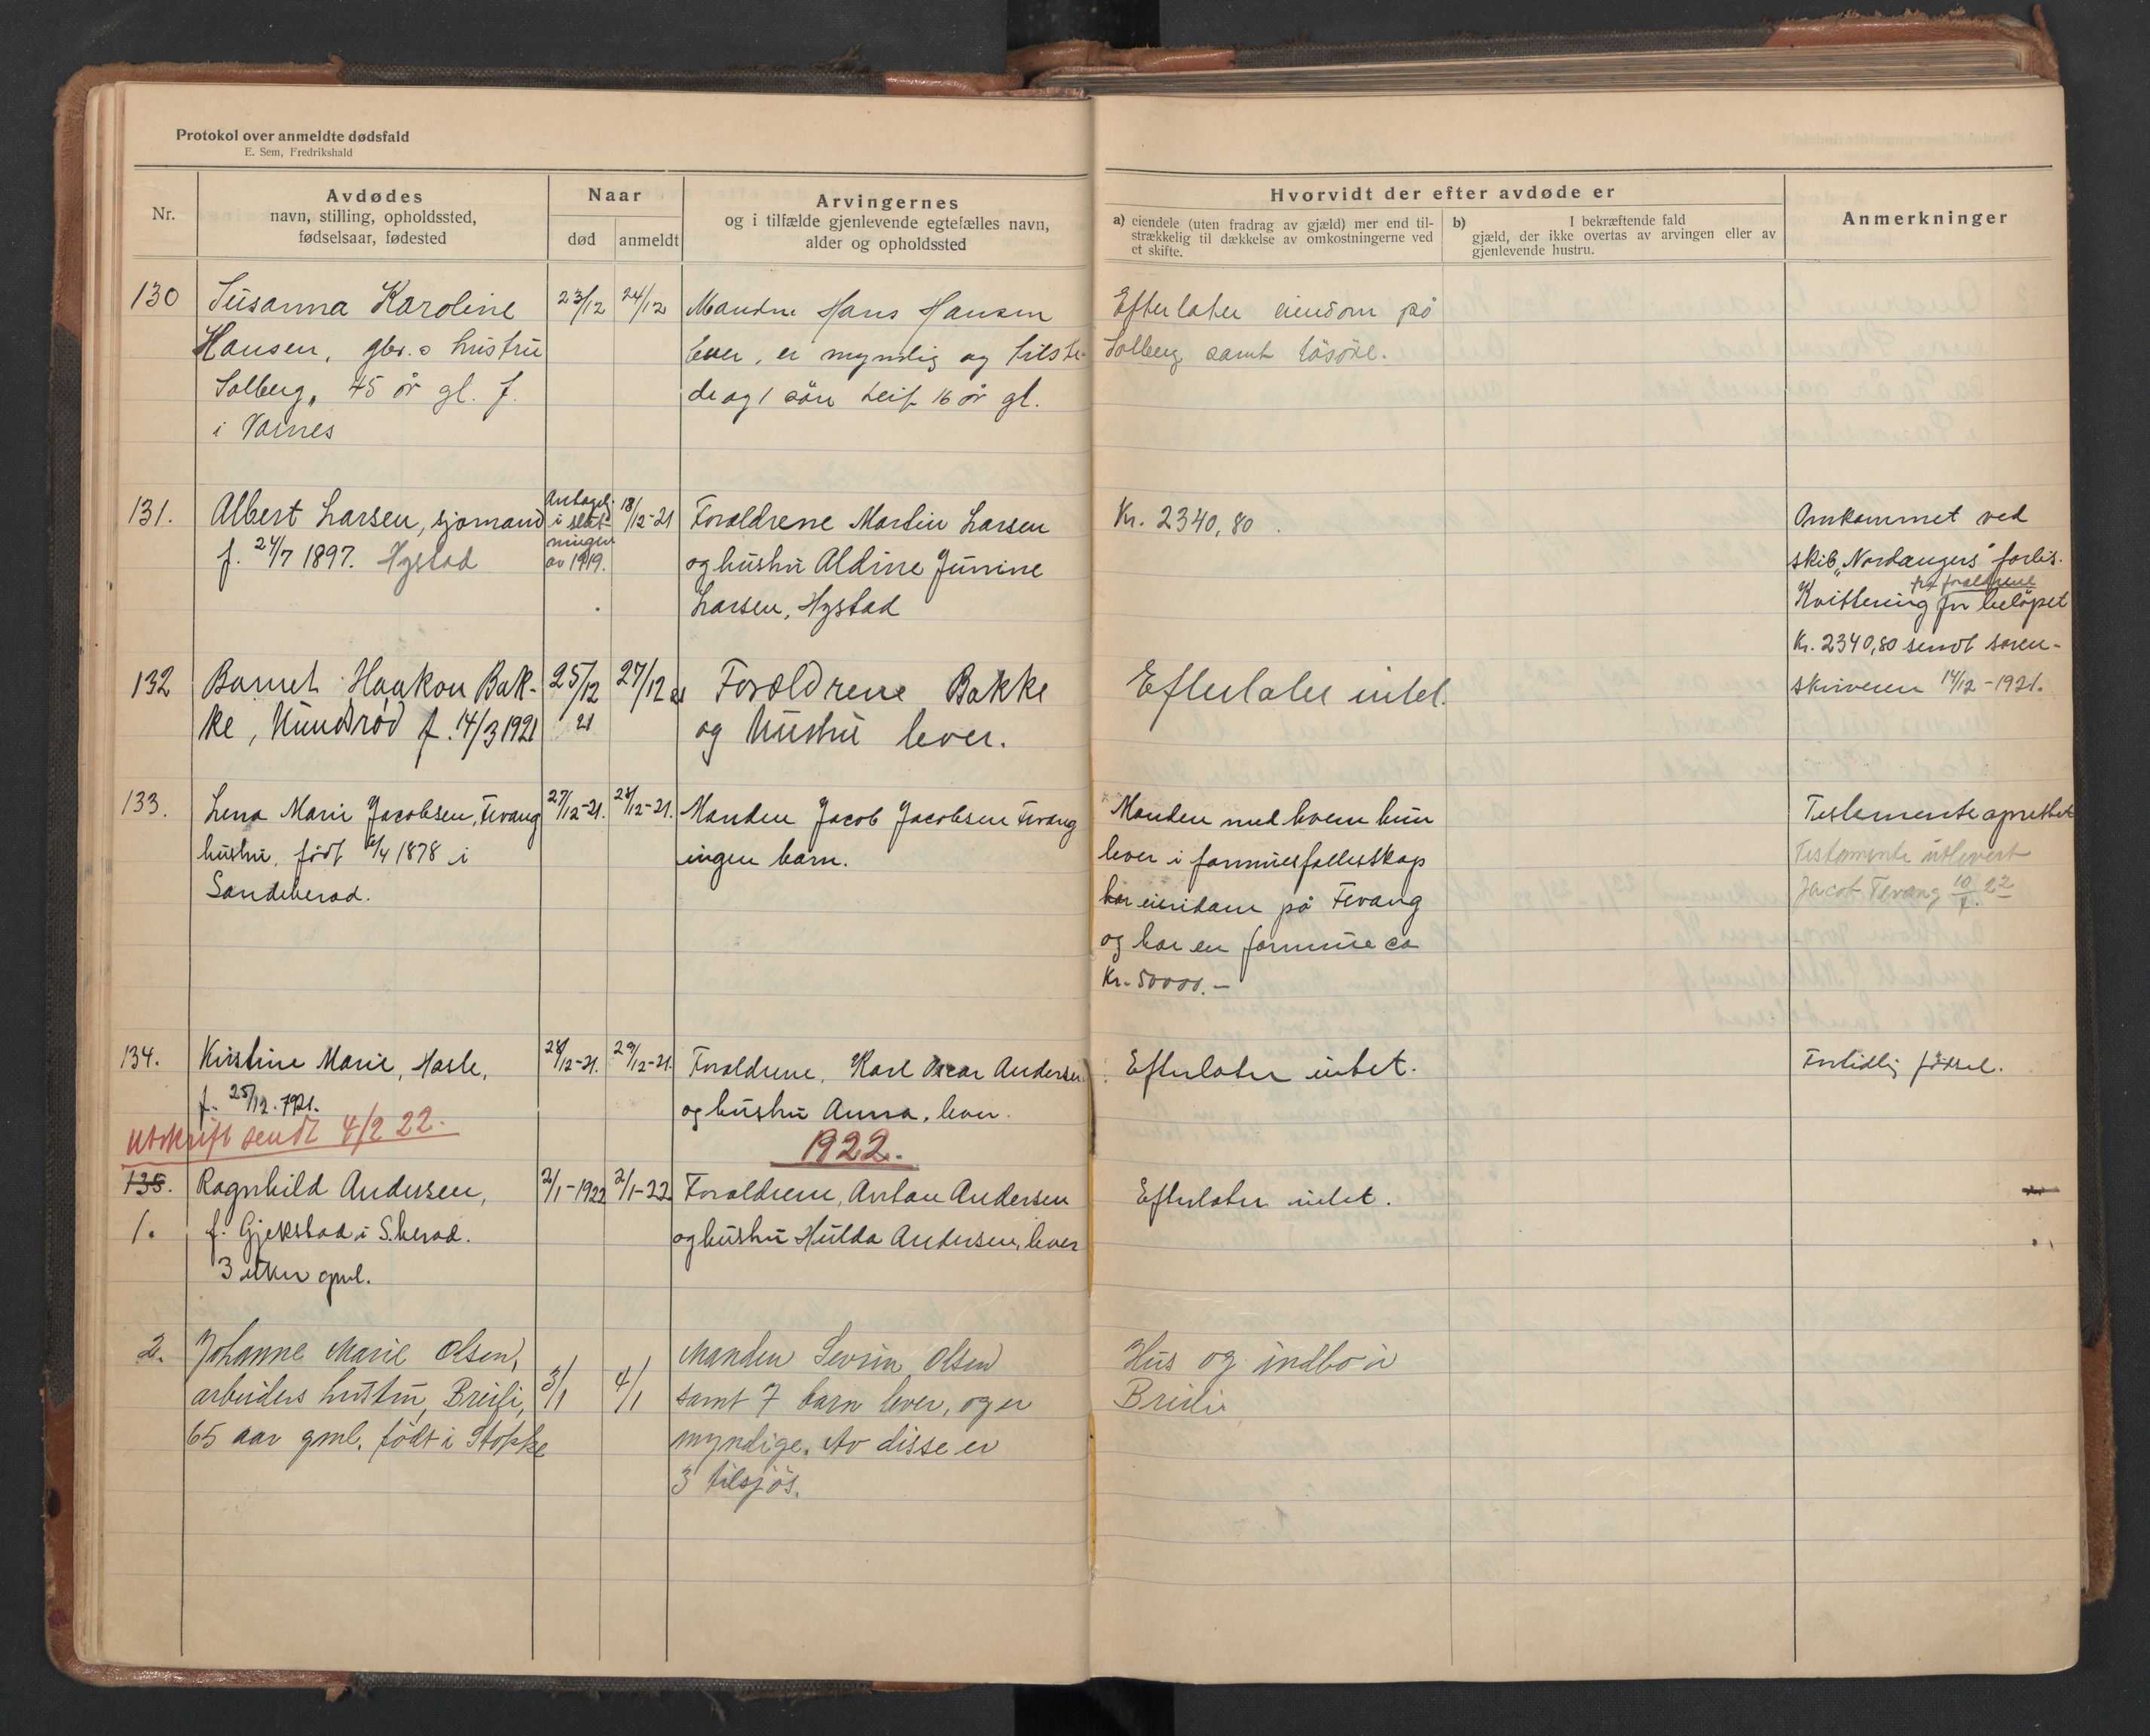 Protokol over anmeldte dødsfald
E. Sem, Fredrikshald
Nr.
Avdødes
navn, stilling, opholdssted,
fødselsaar, fødested
Naar
død
anmeldt
Arvingernes
og i tilfælde gjenlevende egtefælles navn,
alder og opholdssted
Hvorvidt der efter avdøde er
a) eiendele (uten fradrag av gjæld) mer end til-
strækkelig til dækkelse av omkostningerne ved
et skifte.
b) I bekræftende fald
gjæld, der ikke overtas av arvingen eller av
gjenlevende hustru.
Anmerkninger
130
Susanna Karoline
Hansen, gbr.s hustru
Solberg, 45 år gl. f.
i Varnes
23/12
24/12
Manden Hans Hansen
lever, er myndig og tilste-
de og 1 sön Leif 16 år gl.
Efterlater eiendom på
Solberg samt lösöre.
131.
Albert Larsen, sjømand
f. 24/7 1897. Hystad
Antagel.
i slut-
ningen
av 1919.
18/12-21
Forældrene Martin Larsen
og hustru Aldine Junine
Larsen, Hystad
Kr. 2340,80.
Omkommet ved
skib „Nordangers" forlis.
fra forældrene
Kvittering for belöpet
Kr. 2340,80 sendt soren-
skriveren 14/12-1921.
132
Barnet Haakon Bak-
ke, Hundsrød f. 14/3 1921
25/12
21
27/12 21
Forældrene Bakke
og Hustru lever.
Efterlater intet.
133.
Lena Marie Jacobsen, Fevang
hustru, födt 6/4 1878 i
Sandeherad.
27/12-21.
28/12-21.
Manden Jacob Jacobsen Fevang
ingen barn.
Manden med hvem hun
lever i formuesfællesskap
har eiendom på Fevang
og har en formue ca
Kr. 50000.-
Testamente oprettet
Testamente utlevert
Jacob Fevang 10/1. 22
134.
Kirstine Marie, Hasle,
f. 25/12. 1921.
28/12-21.
29/12-21.
Forældrene, Karl Oscar Andersen
og hustru Anna, lever.
Efterlater intet.
Fortidlig födsel.
Utskrift sendt 4/2 22.
1922.
135.
1.
Ragnhild Andersen,
f. Gjekstad i S.herad.
3 uker gml.
2/1-1922
2/1-22
Forældrene, Anton Andersen
og hustru Hulda Andersen, lever
Efterlater intet.
2.
Johanne Marie Olsen,
arbeiders hustru, Breili,
65 aar gml. födt i Stokke
3/1
4/1
Manden Sevrin Olsen
samt 7 barn lever, og er
myndige. Av disse er
3 tilsjös.
Hus og indbo i
Breili